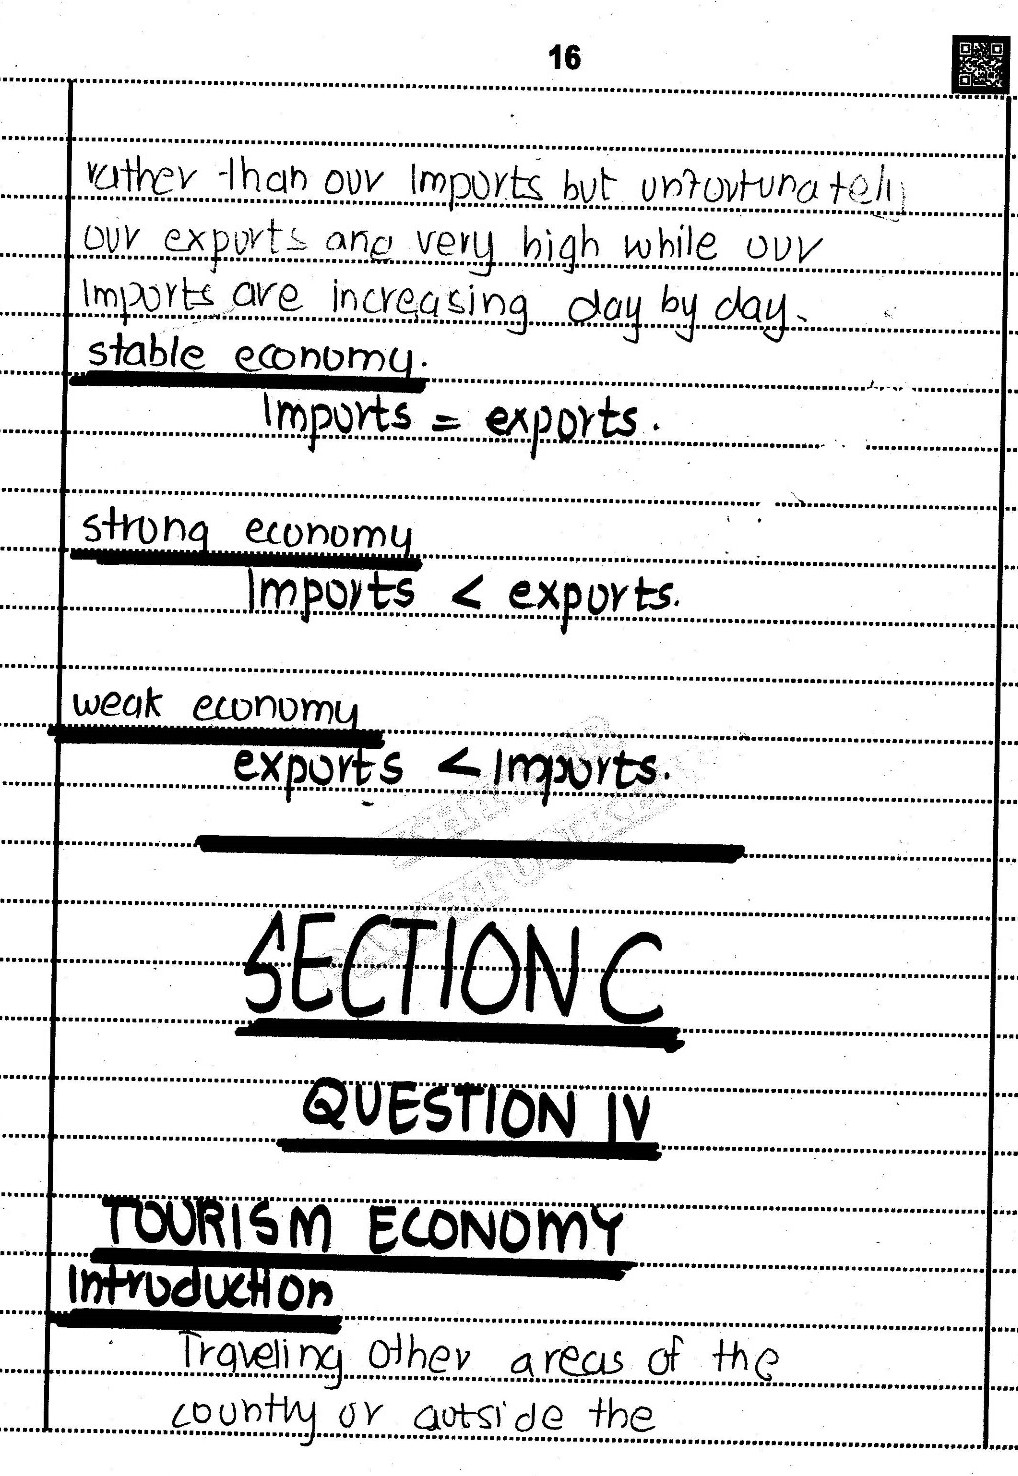 16
rather than our Imports but unfortunately
our exports are very high while our
Imports are increasing day by day.
stable economy.
Imports = exports.
strong economy
Imports < exports.
weak economy
exports < Imports.
SECTION C
QUESTION IV
TOURISM ECONOMY
Introduction
Traveling other areas of the
country or outside the